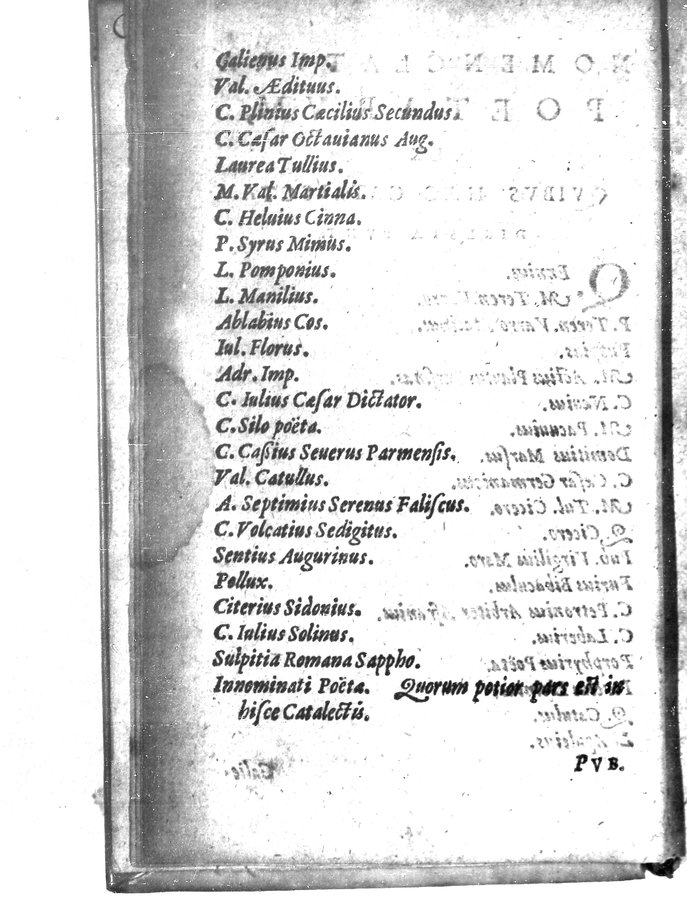 Galienus Imp.
Val. Ædituus.
C. Plinius Cæcilius Secundus.
C. Cæſar Octauianus Aug.
Laurea Tullius.
M. Val. Martialis.
C. Heluius Cinna.
P. Syrus Mimus.
L. Pomponius.
L. Manilius.
Ablabius Cos.
Iul. Florus.
Adr. Imp.
C. Iulius Cæſar Dictator.
C. Silo poëta.
C. Caſsius Seuerus Parmenſis.
Val. Catullus.
A. Septimius Serenus Faliſcus.
C. Volcatius Sedigitus.
Sentius Augurinus.
Pollux.
Citerius Sidonius.
C. Iulius Solinus.
Sulpitia Romana Sappho.
Innominati Poëtæ. Quorum potior pars est in
hiſce Catalectis.
PVB.